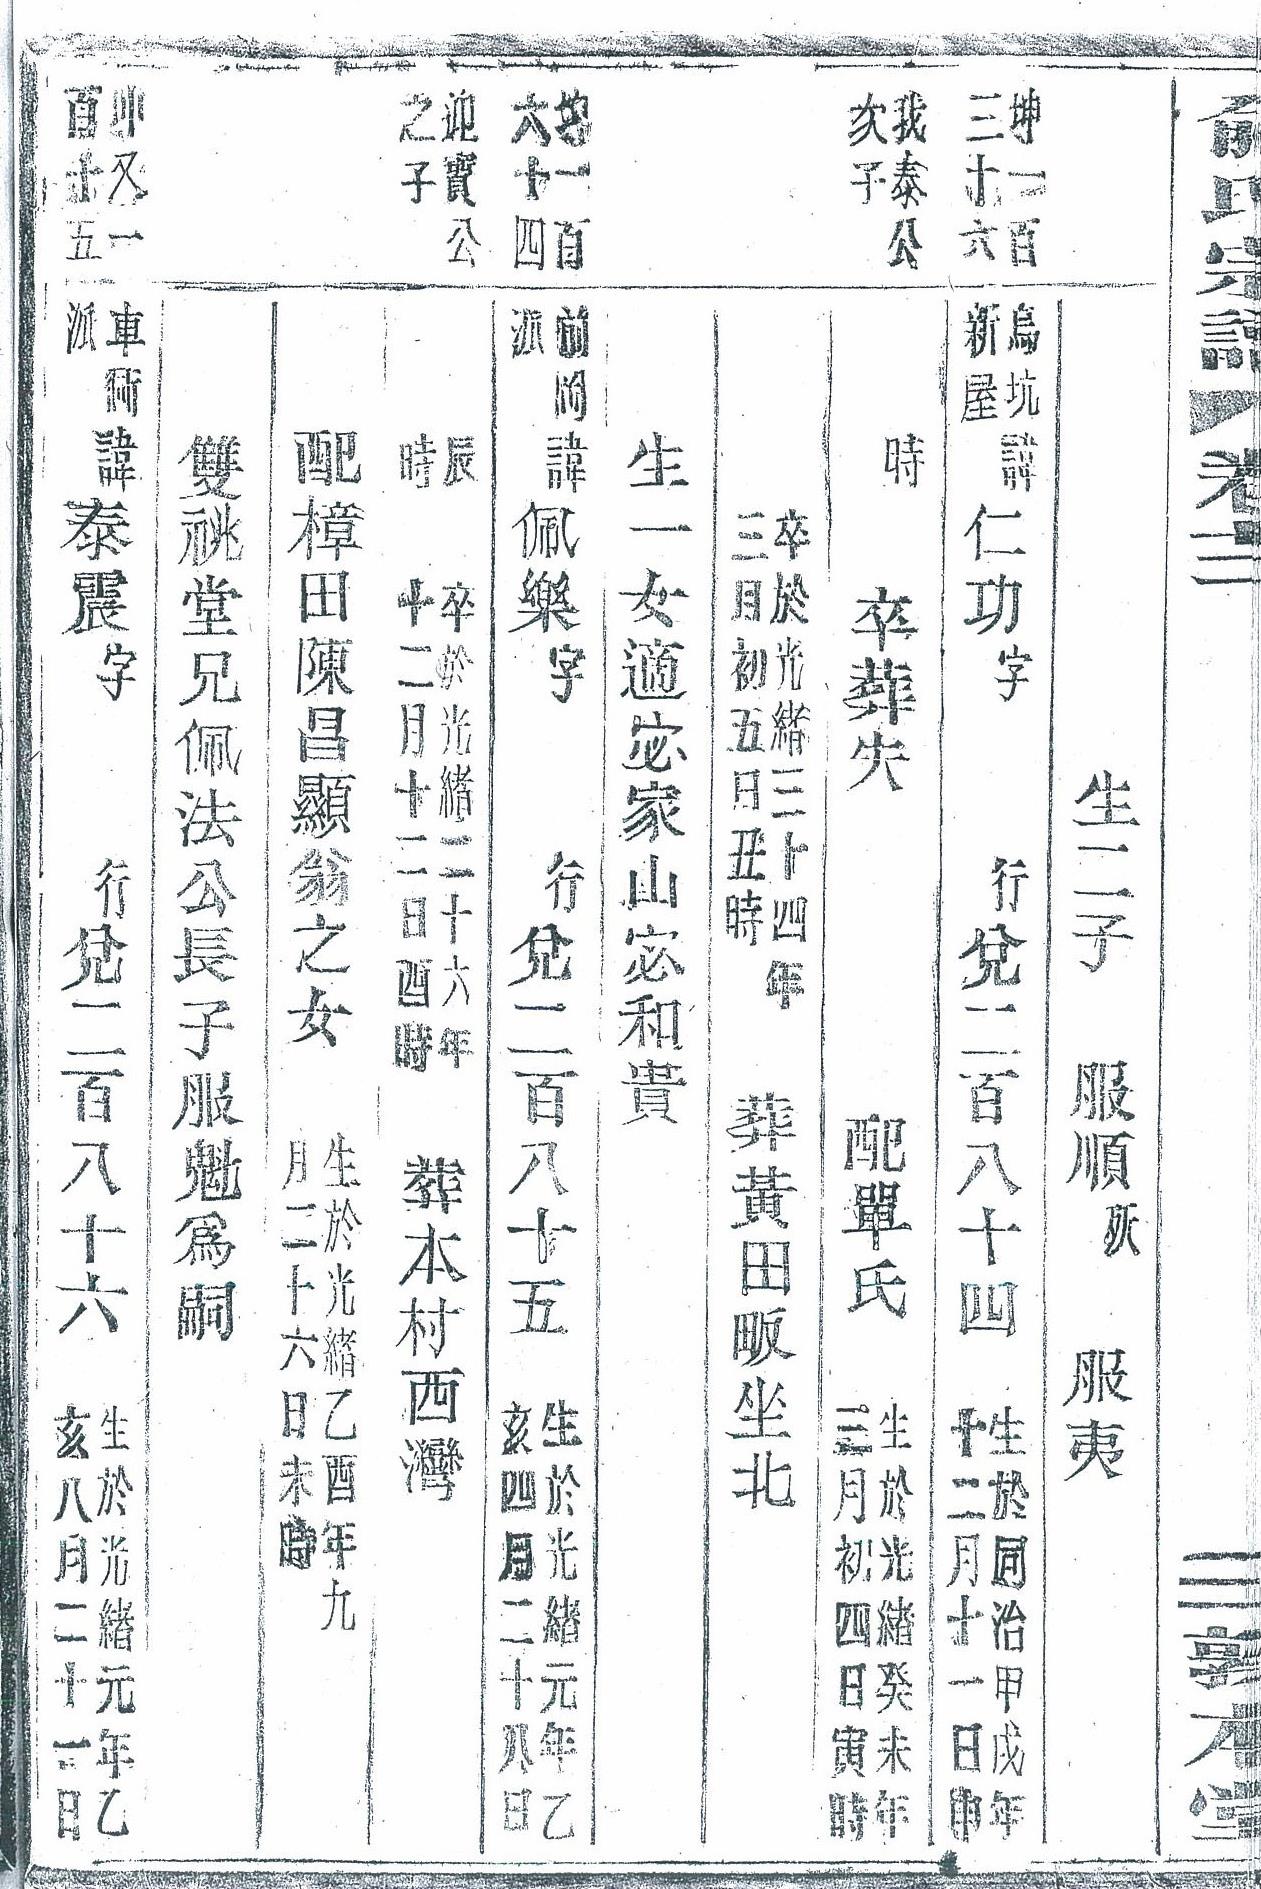 俞氏宗譜 卷十二 三 敦本堂
生二子 服順 夭 服夷
坤一百
三十六
烏坑
新屋
諱仁功字 行兌二百八十四 生於同治甲戌年
十二月十一日申
我泰公
次子
時 卒葬失 配單氏 生於光緒癸未年
三月初四日寅時
卒於光緒三十四年
三月初五日丑時 葬黃田畈坐北
生一女適宓家山宓和貴
一百
六十四
前岡
派
諱佩樂字 行兌二百八十五 生於光緒元年乙
亥四月二十八日
迎寶公
之子
辰
時 卒於光緒二十六年
十二月十二日酉時 葬本村西灣
配樟田陳昌顯翁之女 生於光緒乙酉年九
月二十六日未時
雙祧堂兄佩法公長子服魁為嗣
又一
百十五
車衕
派
諱泰震字 行兌二百八十六 生於光緒元年乙
亥八月二十一日